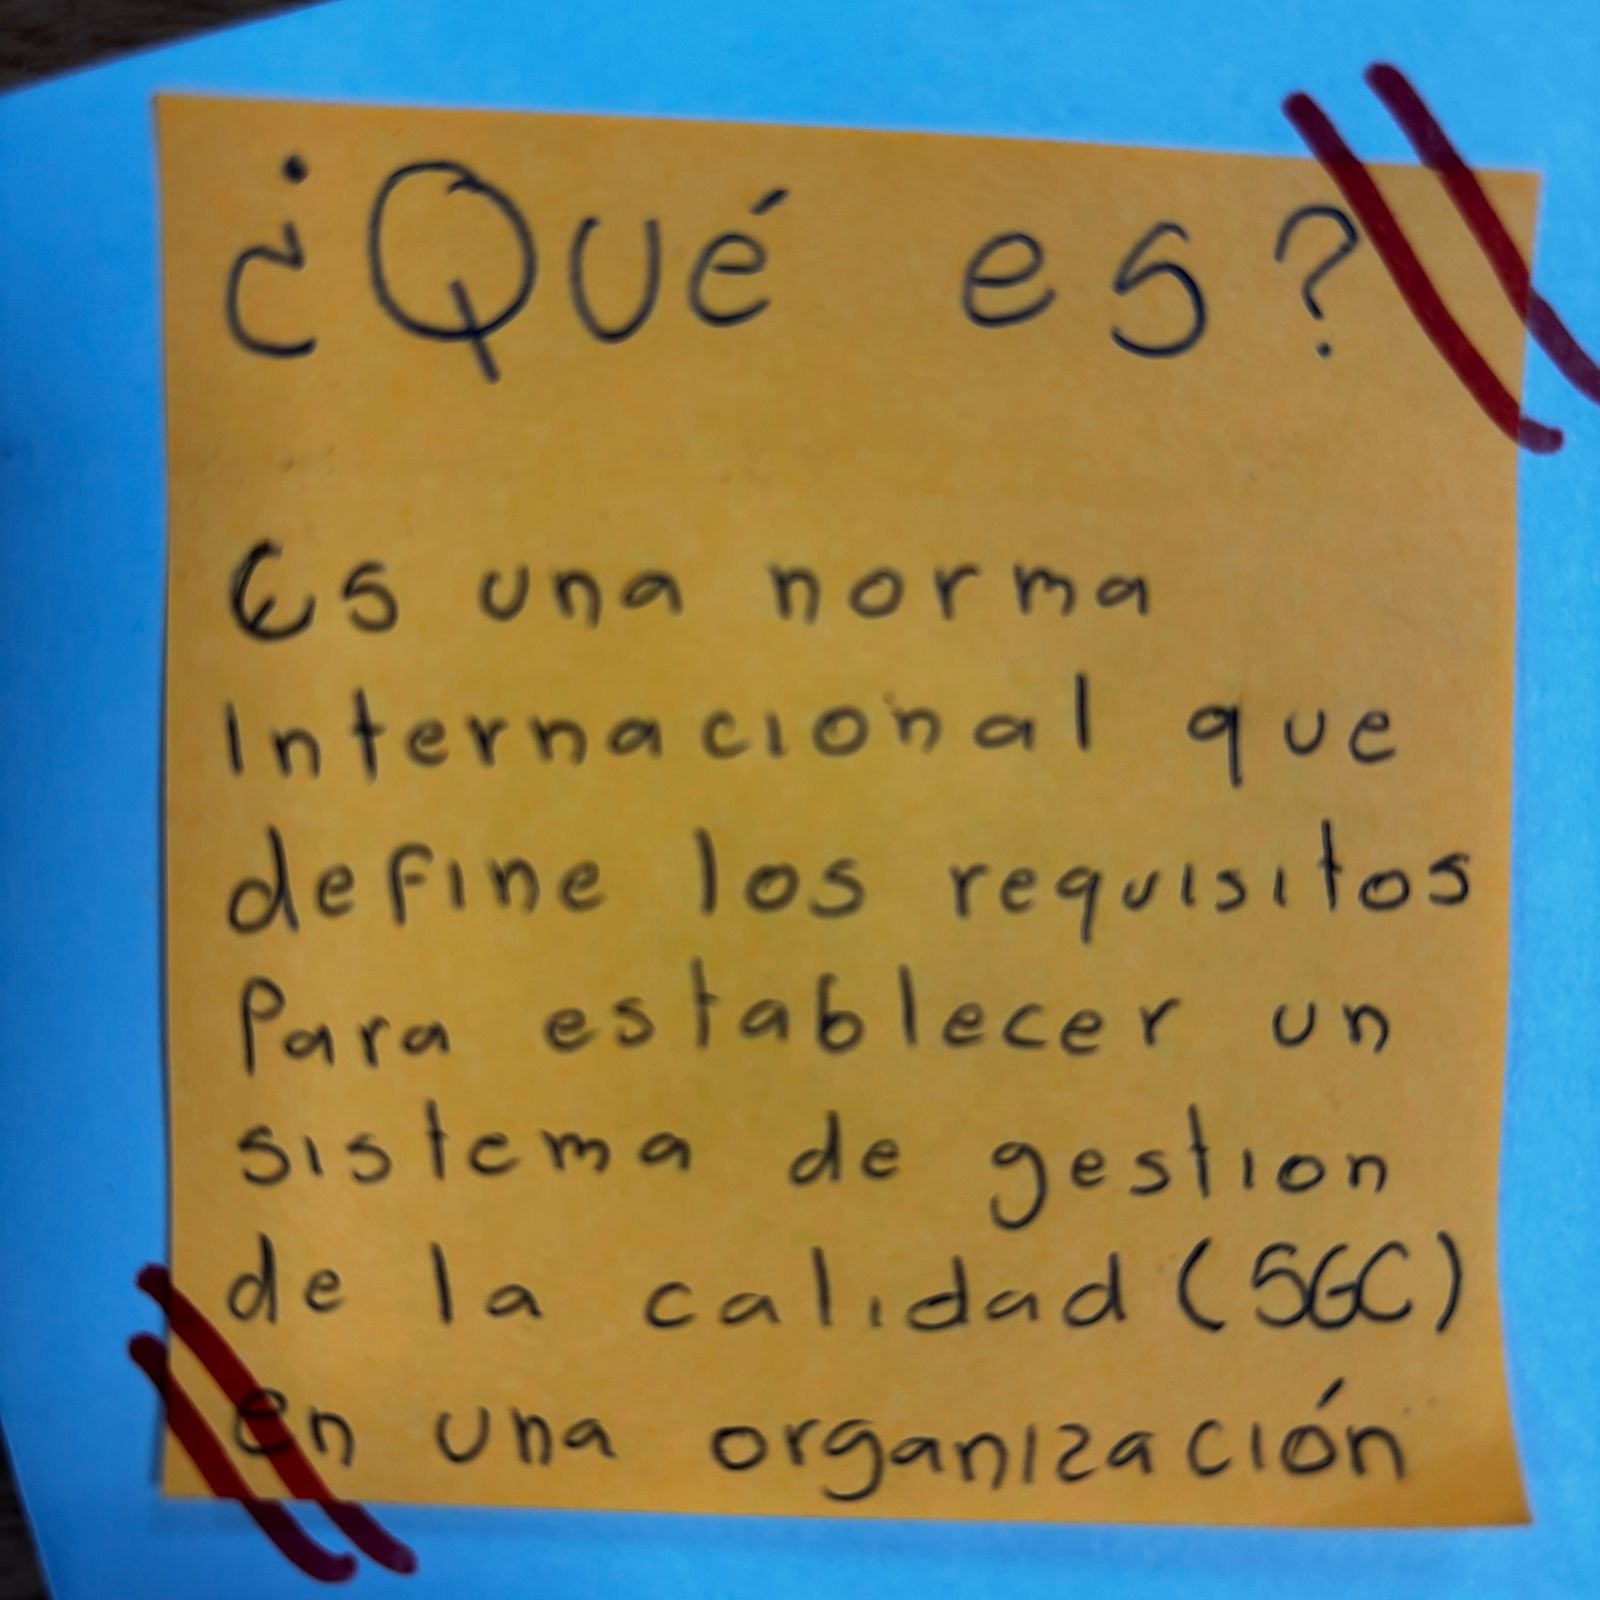 ¿Qué es?
Es una norma
Internacional que
define los requisitos
Para establecer un
sistema de gestion
de la calidad (SGC)
en una organización